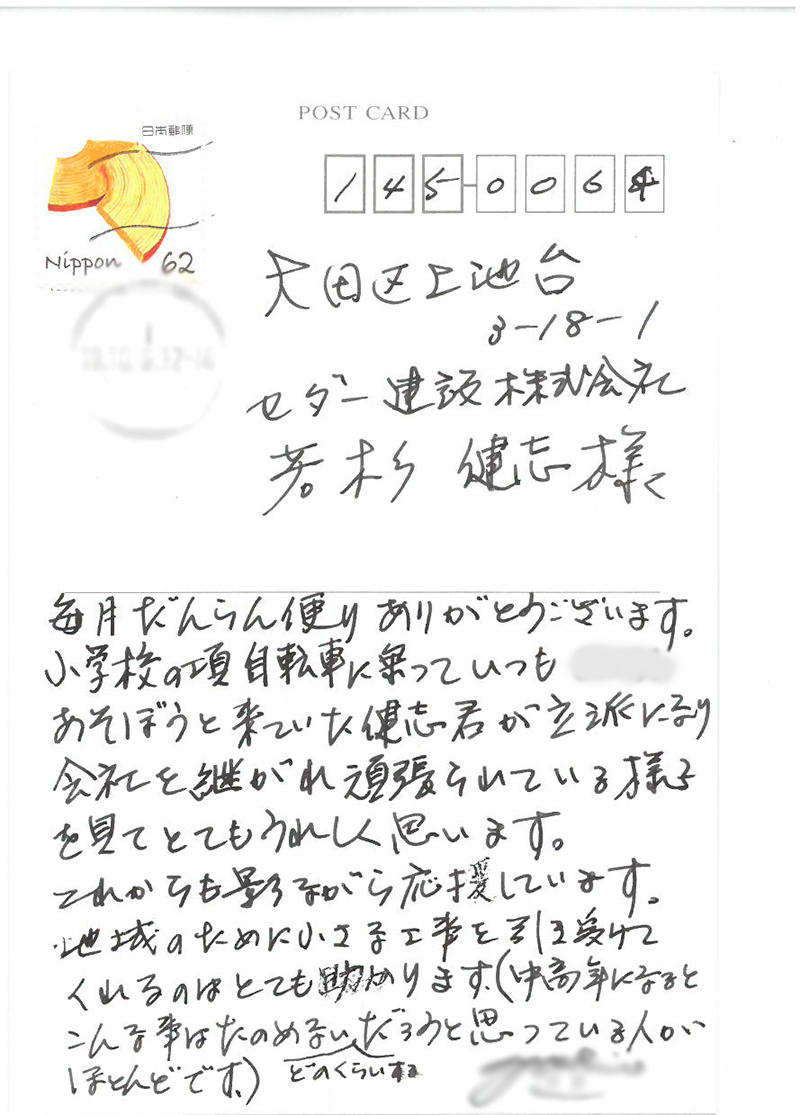 POST CARD
日本郵便
Nippon 62
145-0064
大田区上池台
3-18-1
セダー建設株式会社
若杉 健志様
毎月だんらん便りありがとうございます。
小学校の項自転車に乗っていつも
あそぼうと来ていた健志君が立派になり
会社を継がれ頑張られている様子
を見てとてもうれしく思います。
これからも影ながら応援しています。
地域のために小さな工事を引き受けて
くれるのはとても助かります。(中高年になると
こんな事はたのめないだろうと思っている人が
ほとんどです。)
どのくらいする